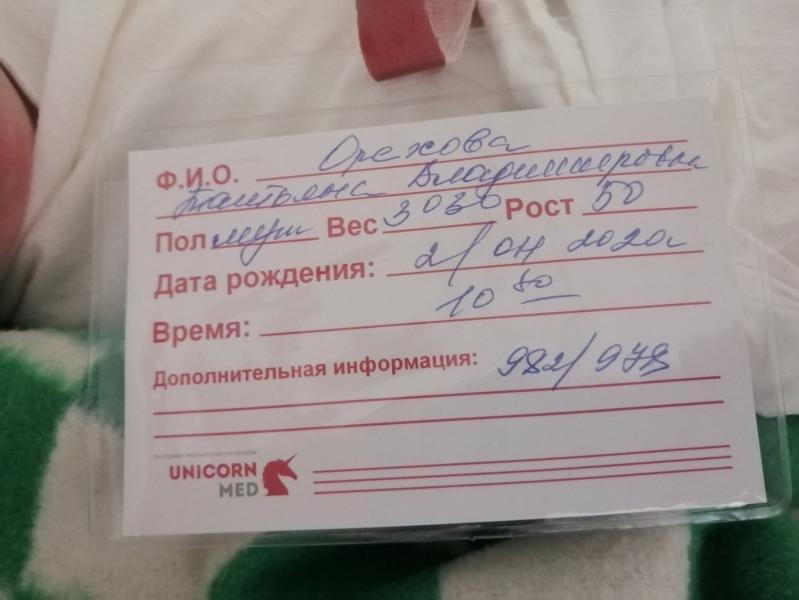 Ф.И.О. Орехова
Татьяна Владимировна
Пол муж Вес 3030 Рост 50
Дата рождения: 21 04 2020г
Время: 10 50
Дополнительная информация: 982/973
UNICORN
MED